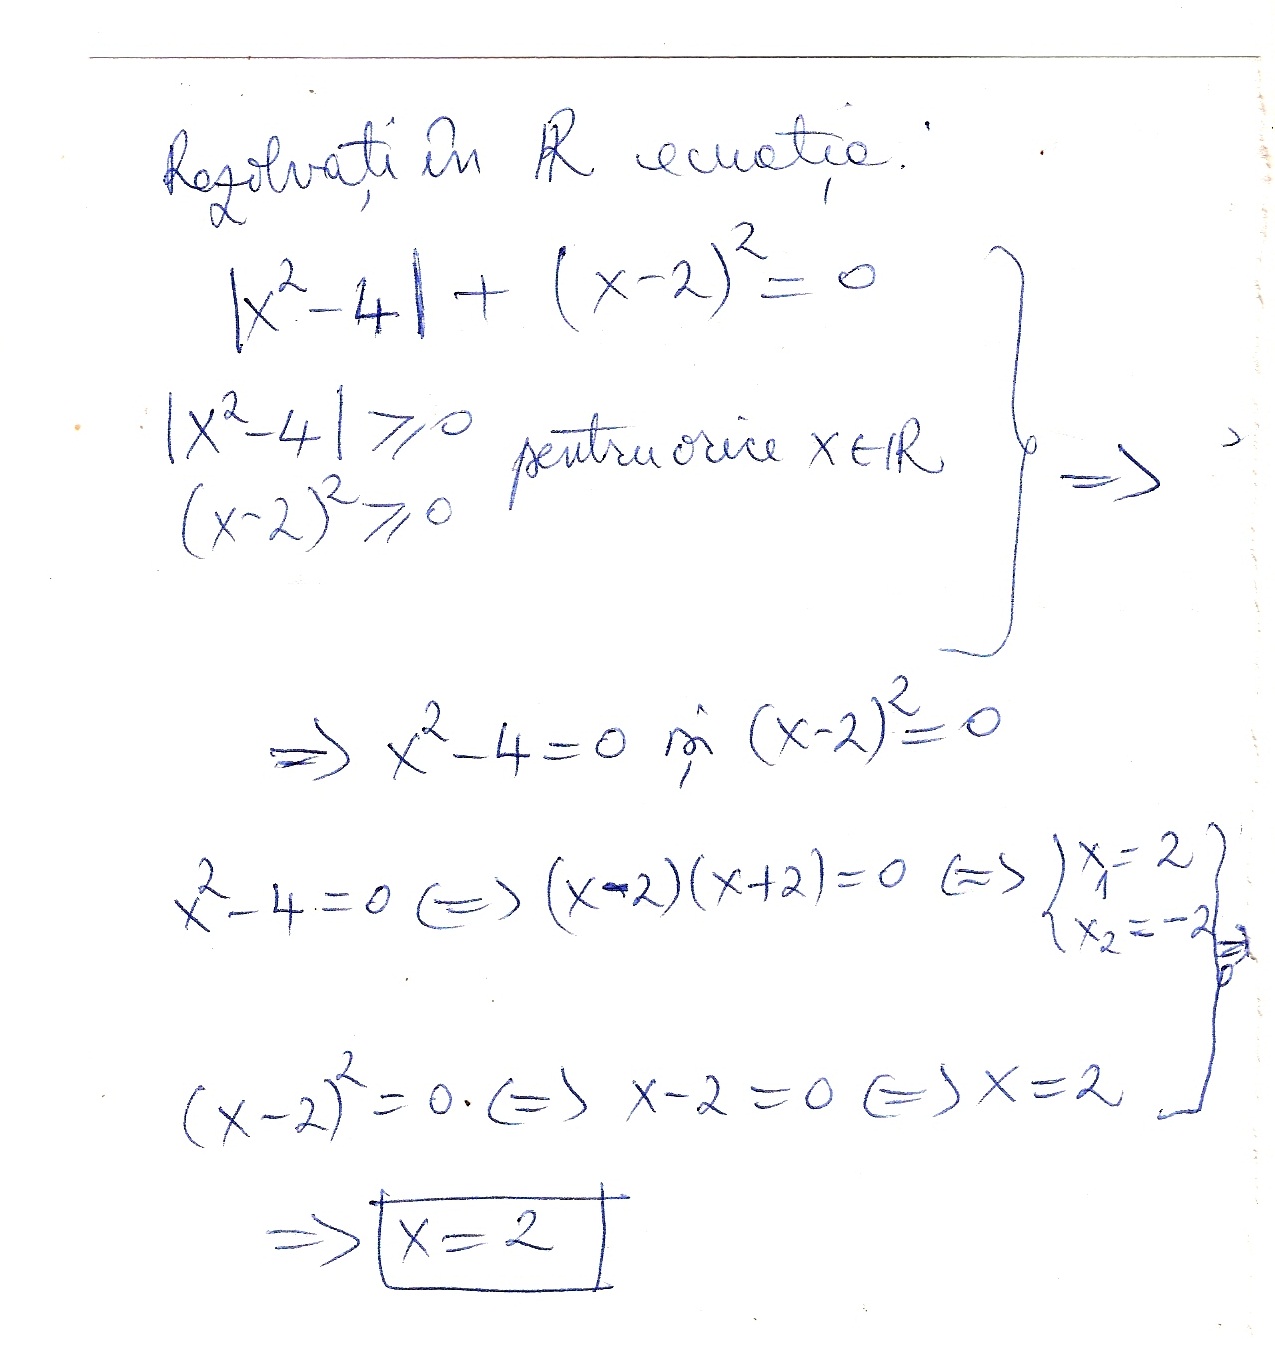 Rezolvați în ℝ ecuația:
|x²-4| + (x-2)² = 0
|x²-4| ⩾ 0
pentru orice x∈ℝ } =>
(x-2)² ⩾ 0
=> x²-4=0 și (x-2)²=0
x²-4=0 <=> (x-2)(x+2)=0 <=> { x₁=2
x₂=-2 } =>
(x-2)²=0. <=> x-2=0 <=> x=2
=> x=2